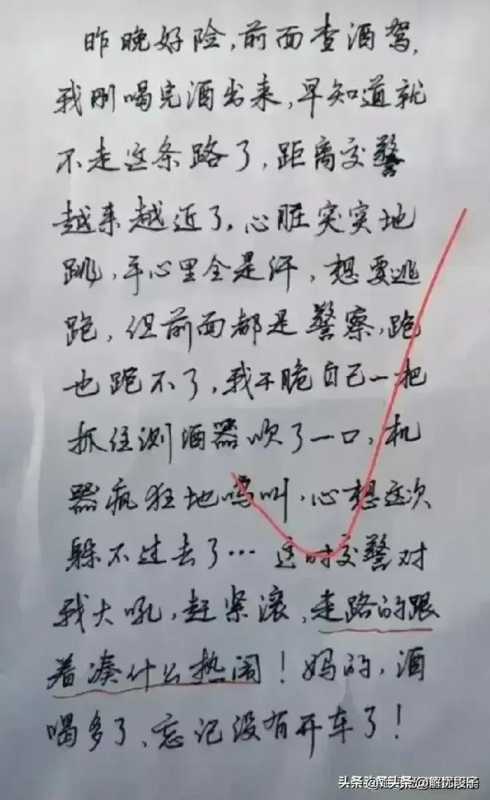 昨晚好险,前面查酒驾,
我刚喝完酒出来,早知道就
不走这条路了,距离交警
越来越近了,心脏突突地
跳,手心里全是汗,想要逃
跑,但前面都是警察,跑
也跑不了,我干脆自己一把
抓住测酒器吹了一口,机
器疯狂地鸣叫,心想这次
躲不过去了…这时交警对
我大吼,赶紧滚,走路的跟
着凑什么热闹!妈的,酒
喝多了、忘记没有开车了!